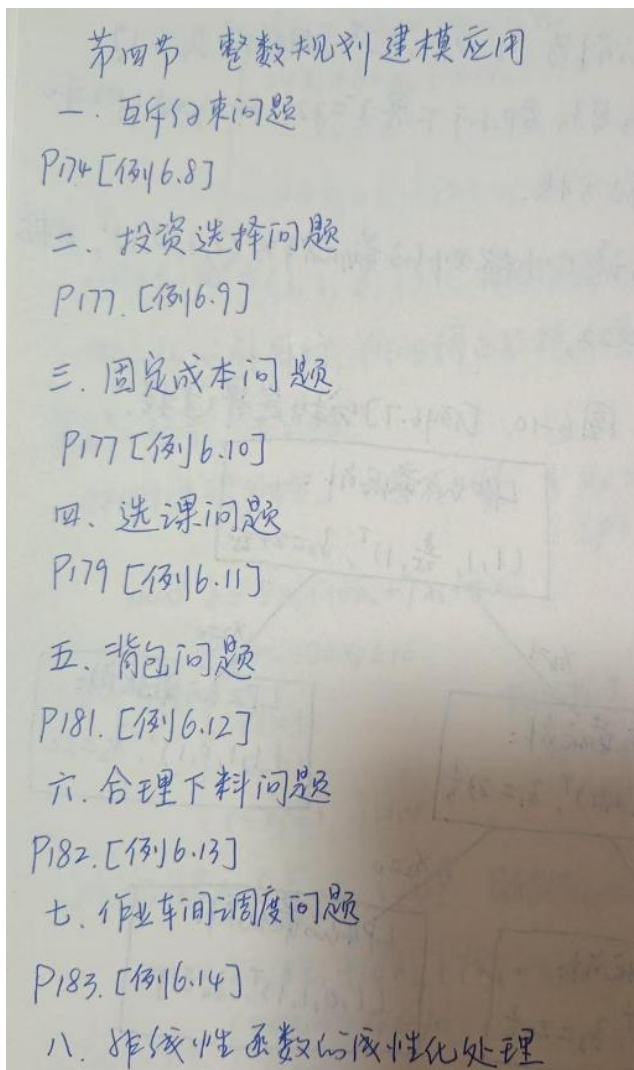 第四节 整数规划建模应用
一. 互斥约束问题
P174[例6.8]
二、投资选择问题
P177.[例6.9]
三.固定成本问题
P177[例6.10]
四、选课问题
P179[例6.11]
五.背包问题
P181.[例6.12]
六.合理下料问题
P182.[例6.13]
七、作业车间调度问题
P183.[例6.14]
八.非线性函数的线性化处理